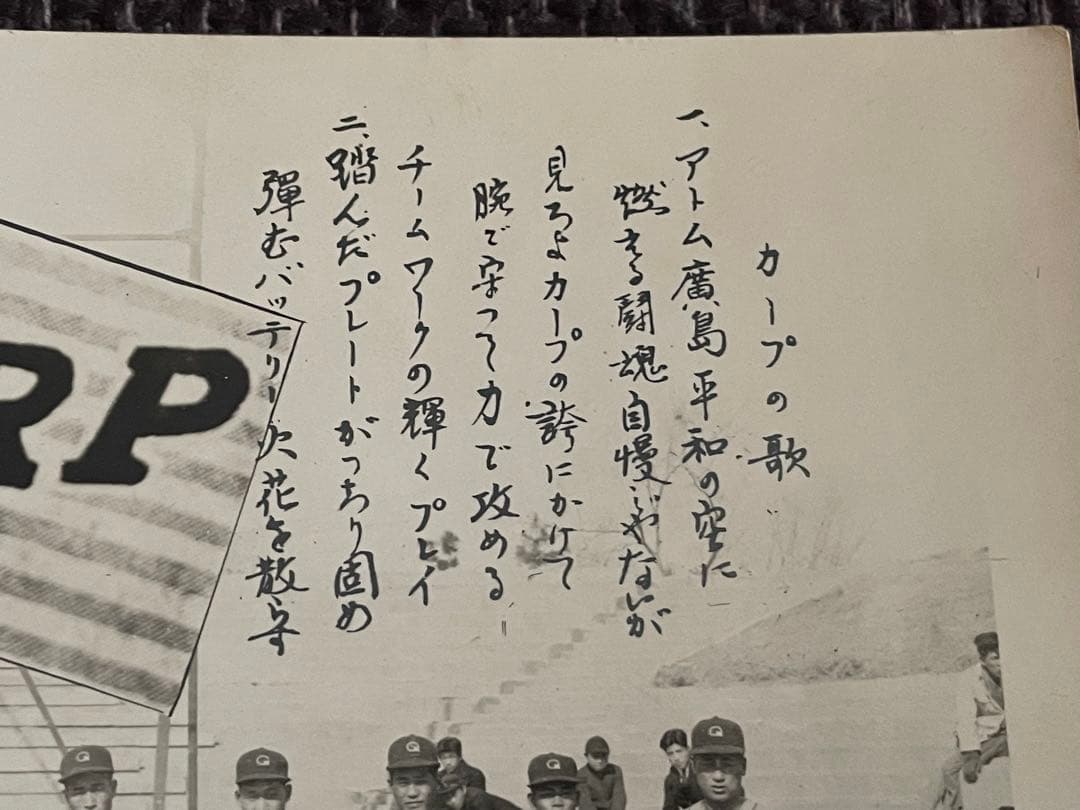 カープの歌
一、アトム廣島平和の空に
燃える闘魂自慢ぢやないが
見ろよカープの誇にかけて
腕で守つて力で攻める
チームワークの輝くプレイ
二、踏んだプレートがつちり固め
彈むバッテリー火花を散らす
RP